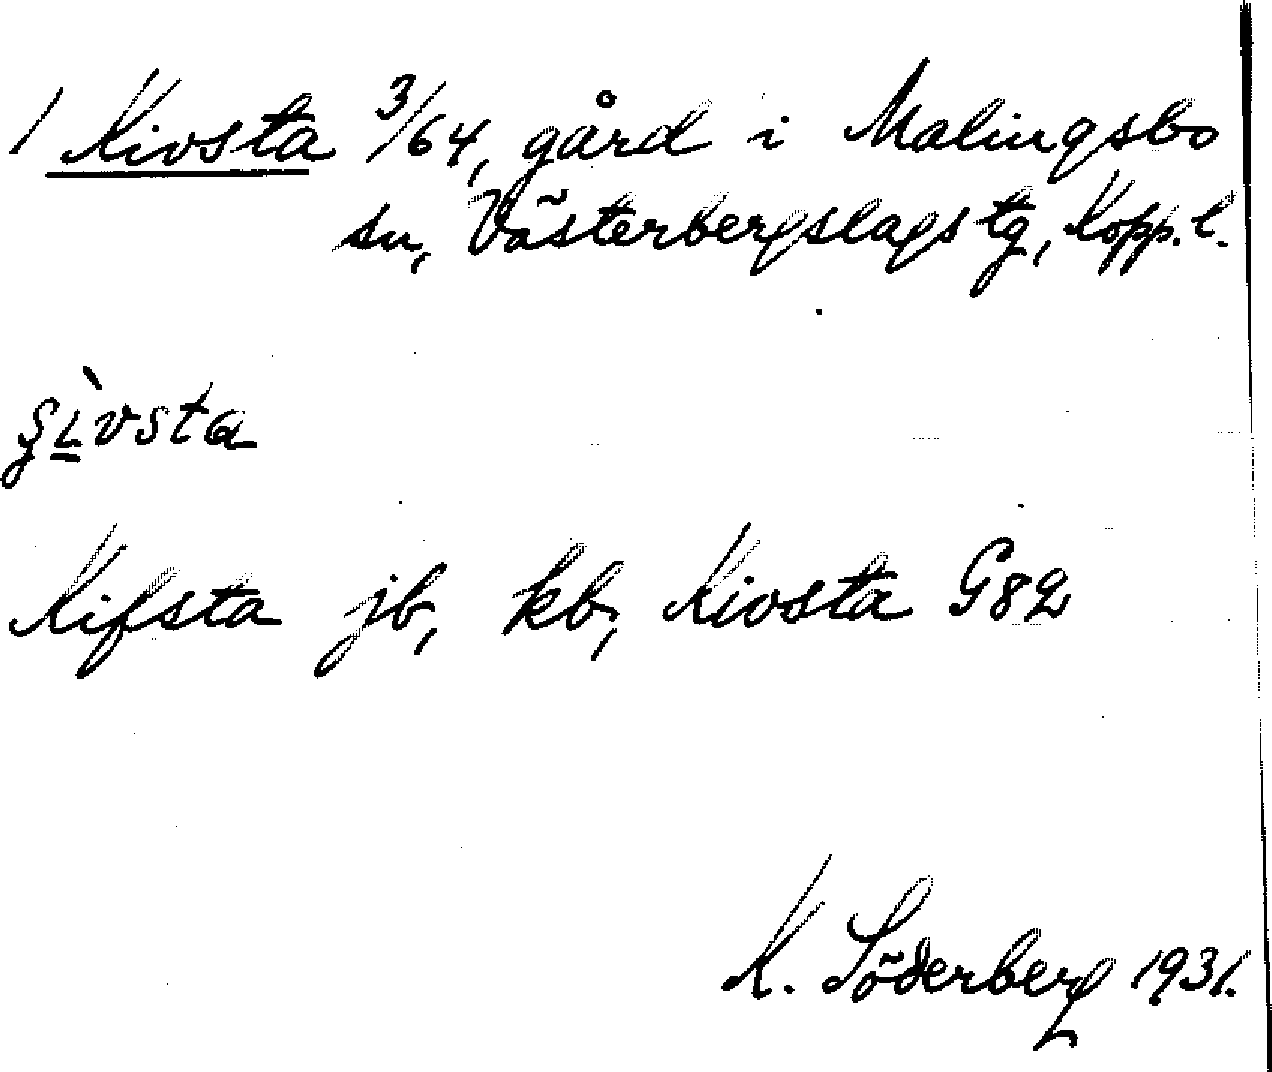 1 Kivsta 3/64, gård i Malingsbo
sn, Västerbergslags tg, Kopp. l.
ʂìvsta
Kifsta jb, kb, Kivsta G82
K. Söderberg 1931.